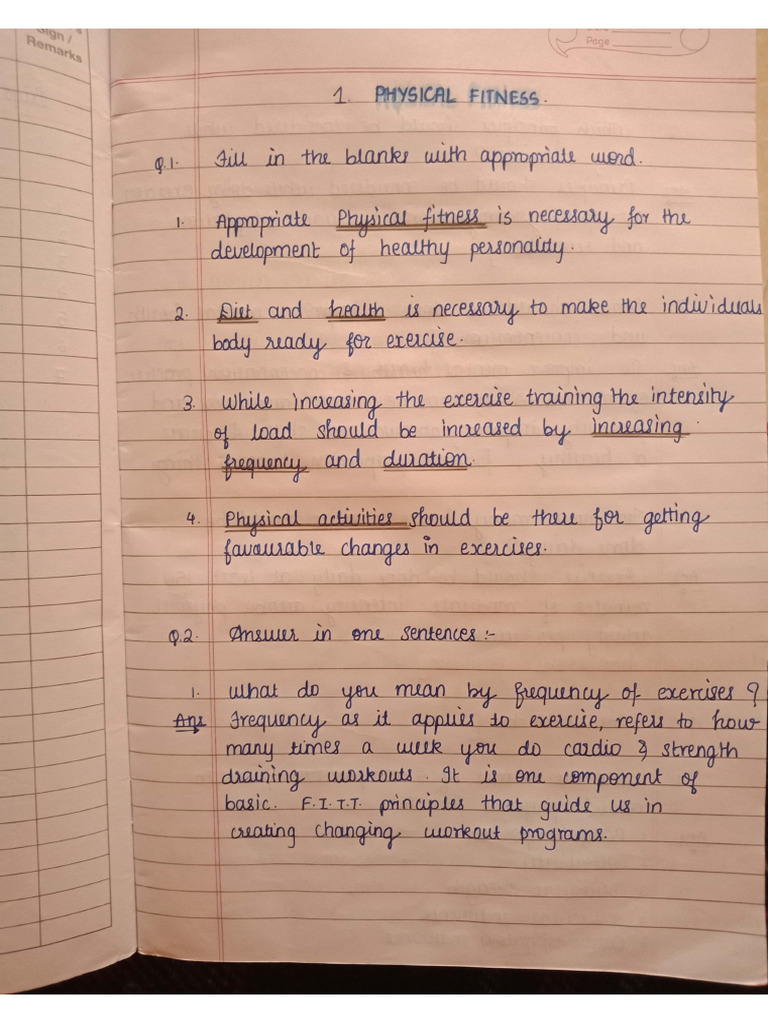 Sign /
Remarks
Page
1. PHYSICAL FITNESS.
Q.1. Fill in the blanks with appropriate word.
1. Appropriate Physical fitness is necessary for the
development of healthy personality.
2. Diet and health is necessary to make the individuals
body ready for exercise.
3. While increasing the exercise training the intensity
of load should be increased by increasing
frequency and duration.
4. Physical activities should be there for getting
favourable changes in exercises.
Q.2. Answer in one sentences :-
1. What do you mean by frequency of exercises ?
Ans Frequency as it applies to exercise, refers to how
many times a week you do cardio & strength
draining workouts. It is one component of
basic. F.I.T.T. principles that guide us in
creating changing workout programs.